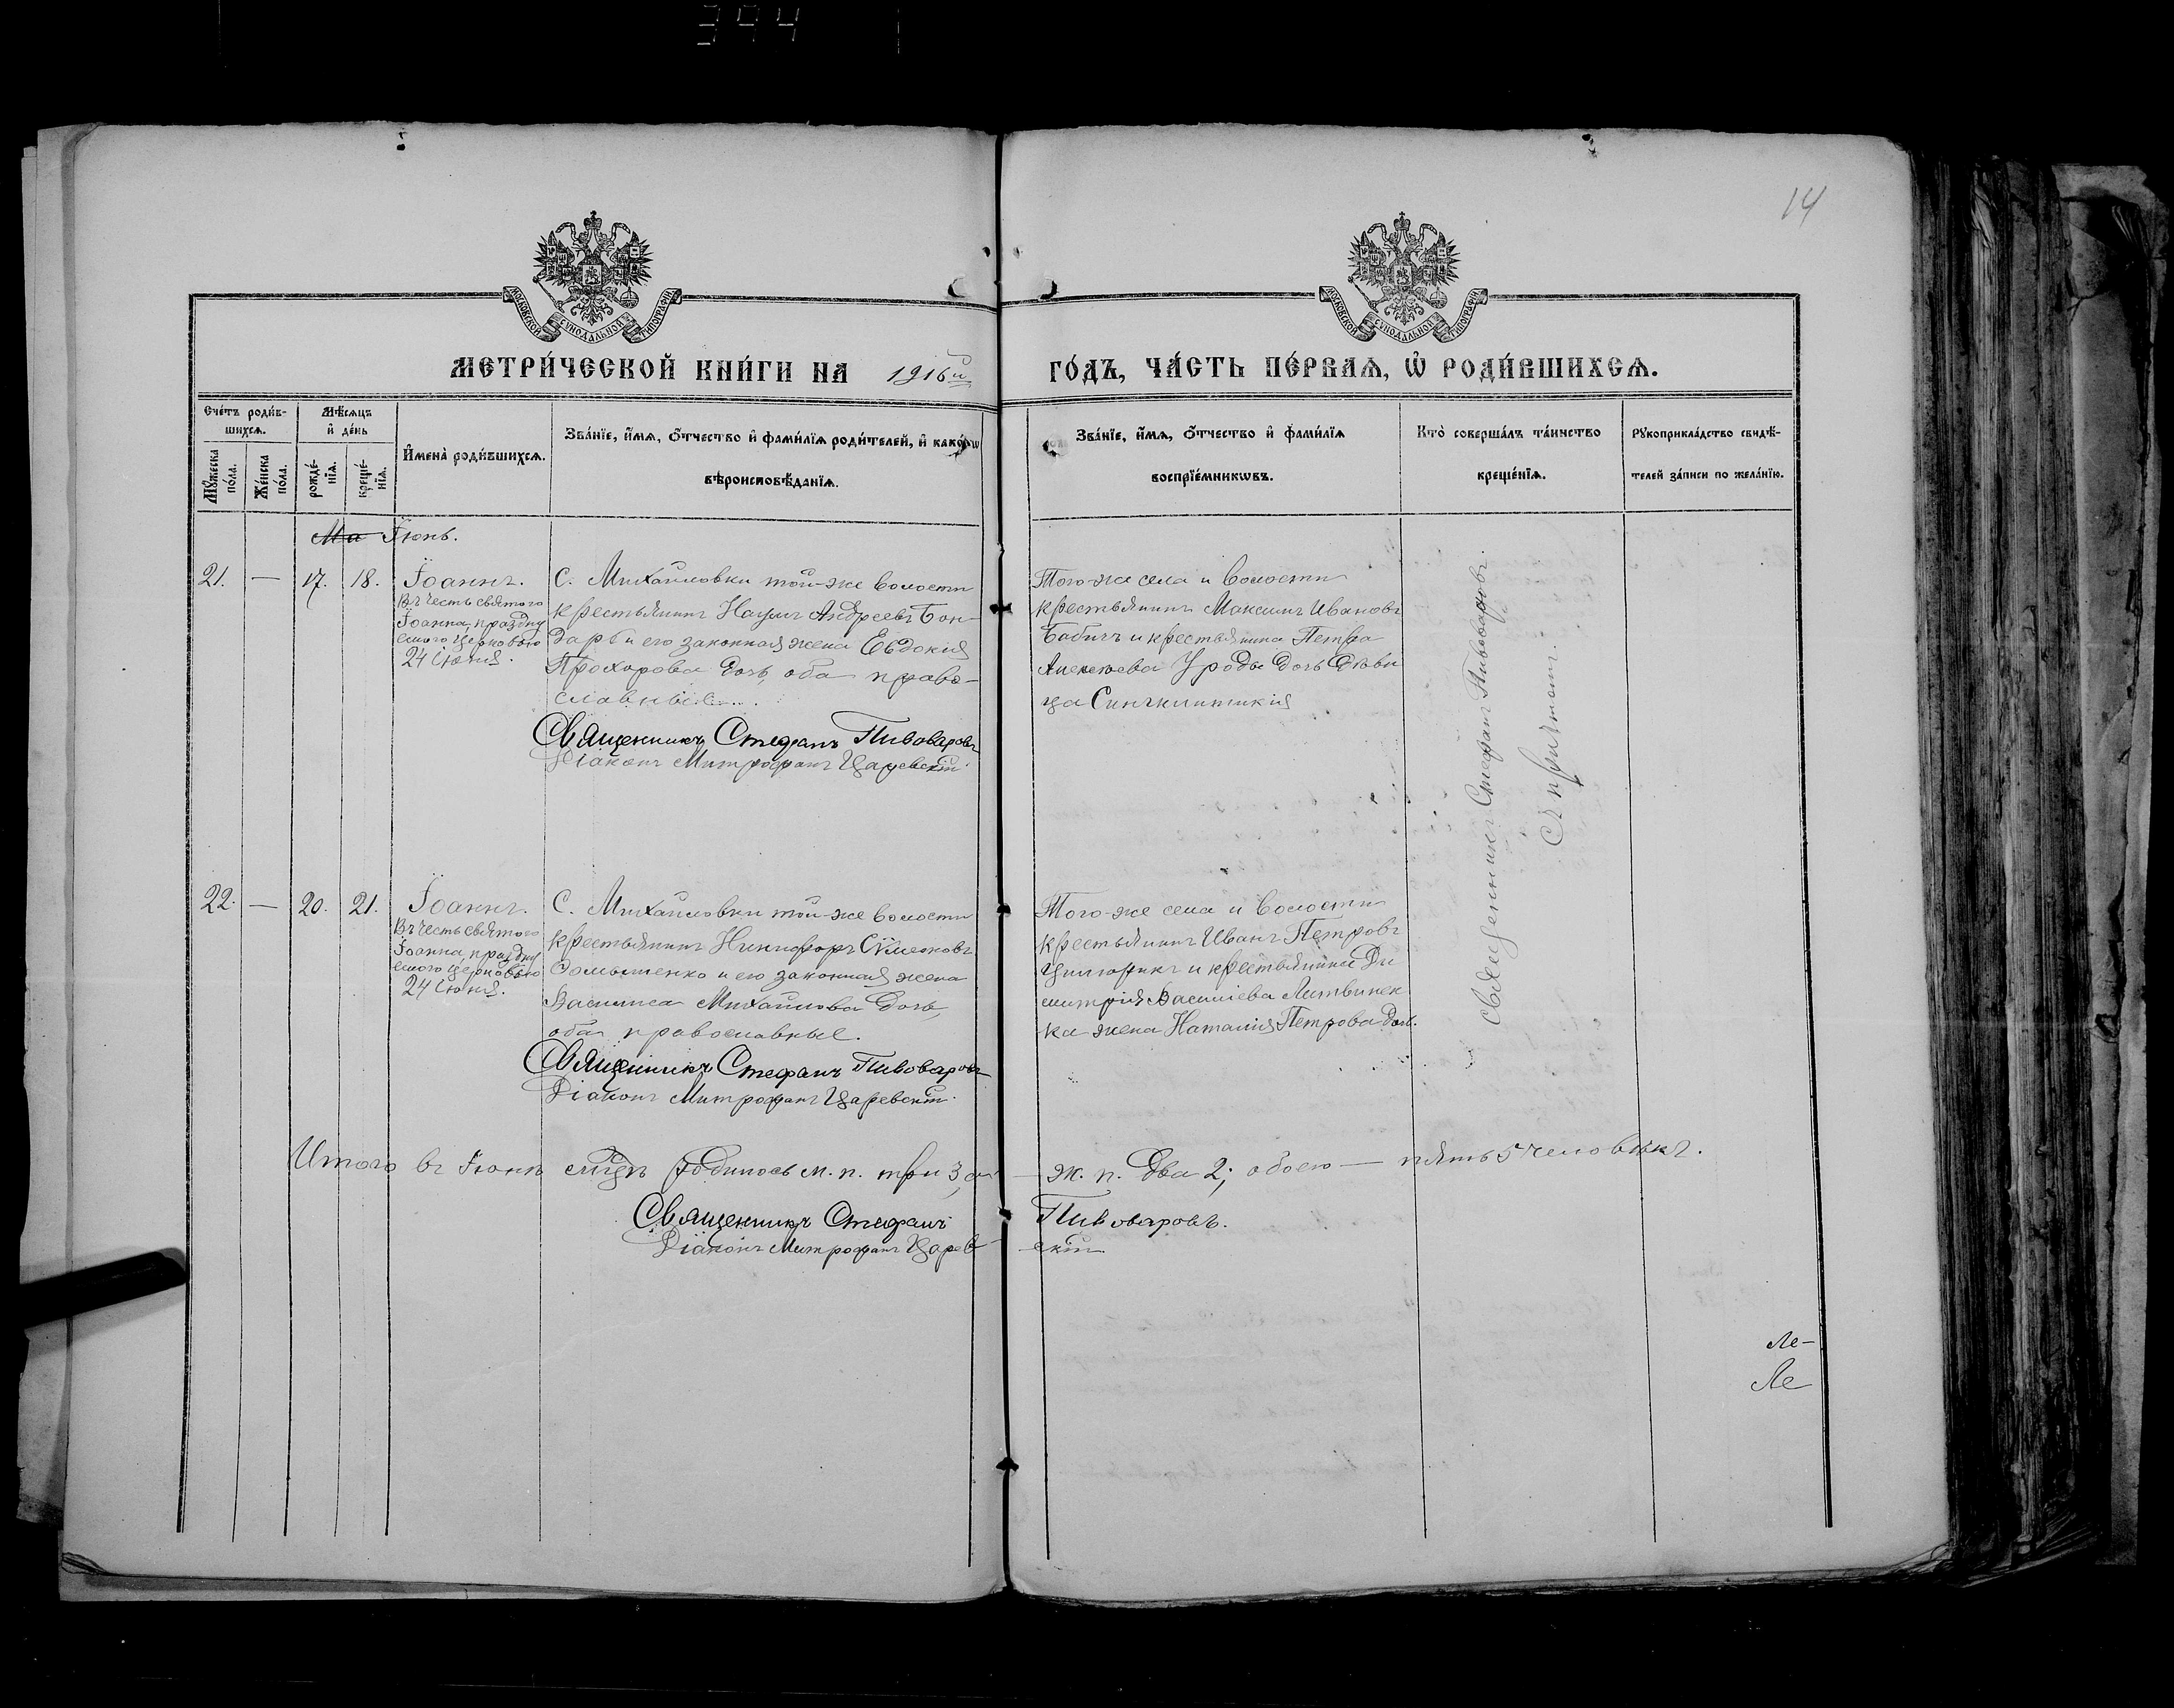 394
14
МОСКОВСКОЙ СѴНОДАЛЬНОЙ ТИПОГРАФІИ
МОСКОВСКОЙ СѴНОДАЛЬНОЙ ТИПОГРАФІИ
МЕТРИ́ЧЕСКОЙ КНИ́ГИ НА 1916й ГО́ДЪ, ЧА́СТЬ ПЕ́РВАѦ, Ѡ҆ РОДИ́ВШИХСѦ.
Сче́тъ роди́в-
шихсѧ.
Мѣ́сѧцъ
и҆ де́нь
Мꙋ́жеска
по́ла.
Же́нска
по́ла.
рожде́-
нїѧ.
креще́-
нїѧ.
И҆мена̀ роди́вшихсѧ.
Зва́нїе, и҆́мѧ, ѻ҆́тчество и҆ фами́лїѧ роди́телей, и҆ како́гѡ
вѣроисповѣ́данїѧ.
Зва́нїе, и҆́мѧ, ѻ҆́тчество и҆ фами́лїѧ
воспрїе́мникѡвъ.
Кто̀ соверша́лъ та́инство
креще́нїѧ.
Рꙋкоприкла́дство свидѣ́-
телей за́писи по жела́нїю.
Ма Іюнь.
21. — 17. 18. Іоаннъ.
Въ честь святого
Іоанна, праздну
емого церковью
24 Июня.
С. Михайловки той-же волости
крестьянинъ Наумъ Андреевъ Бон-
дарь и его законная жена Евдокия
Прохорова дочь, оба право-
славные.
Священникъ Стефанъ Пивоваровъ
Діаконъ Митрофанъ Царевскій.
Того-же села и волости
крестьянинъ Максимъ Ивановъ
Бабичъ и крестьянина Петра
Алексѣева Уроды дочь дѣви
ца Сингклитикия
Священникъ Стефанъ Пивоваровъ.
Съ причтомъ.
22. — 20. 21. Іоаннъ.
Въ честь святого
Іоанна, праздну
емого церковью
24 Июня.
С. Михайловки той-же волости
крестьянинъ Никифоръ Сѵмеоновъ
и его законная жена
Василиса Михайлова дочь,
оба православные.
Священникъ Стефанъ Пивоваровъ
Діаконъ Митрофанъ Царевскій.
Того-же села и волости
крестьянинъ Иванъ Петровъ
и крестьянина Ди
митрия Васильева Литвинен
ка жена Наталия Петрова дочь.
Итого въ Іюнѣ мѣсяцѣ родилось м. п. три 3, а — ж. п. два 2; обоего — пять 5 человѣкъ.
Священникъ Стефанъ Пивоваровъ.
Діаконъ Митрофанъ Царевскій
Ле-
Ле